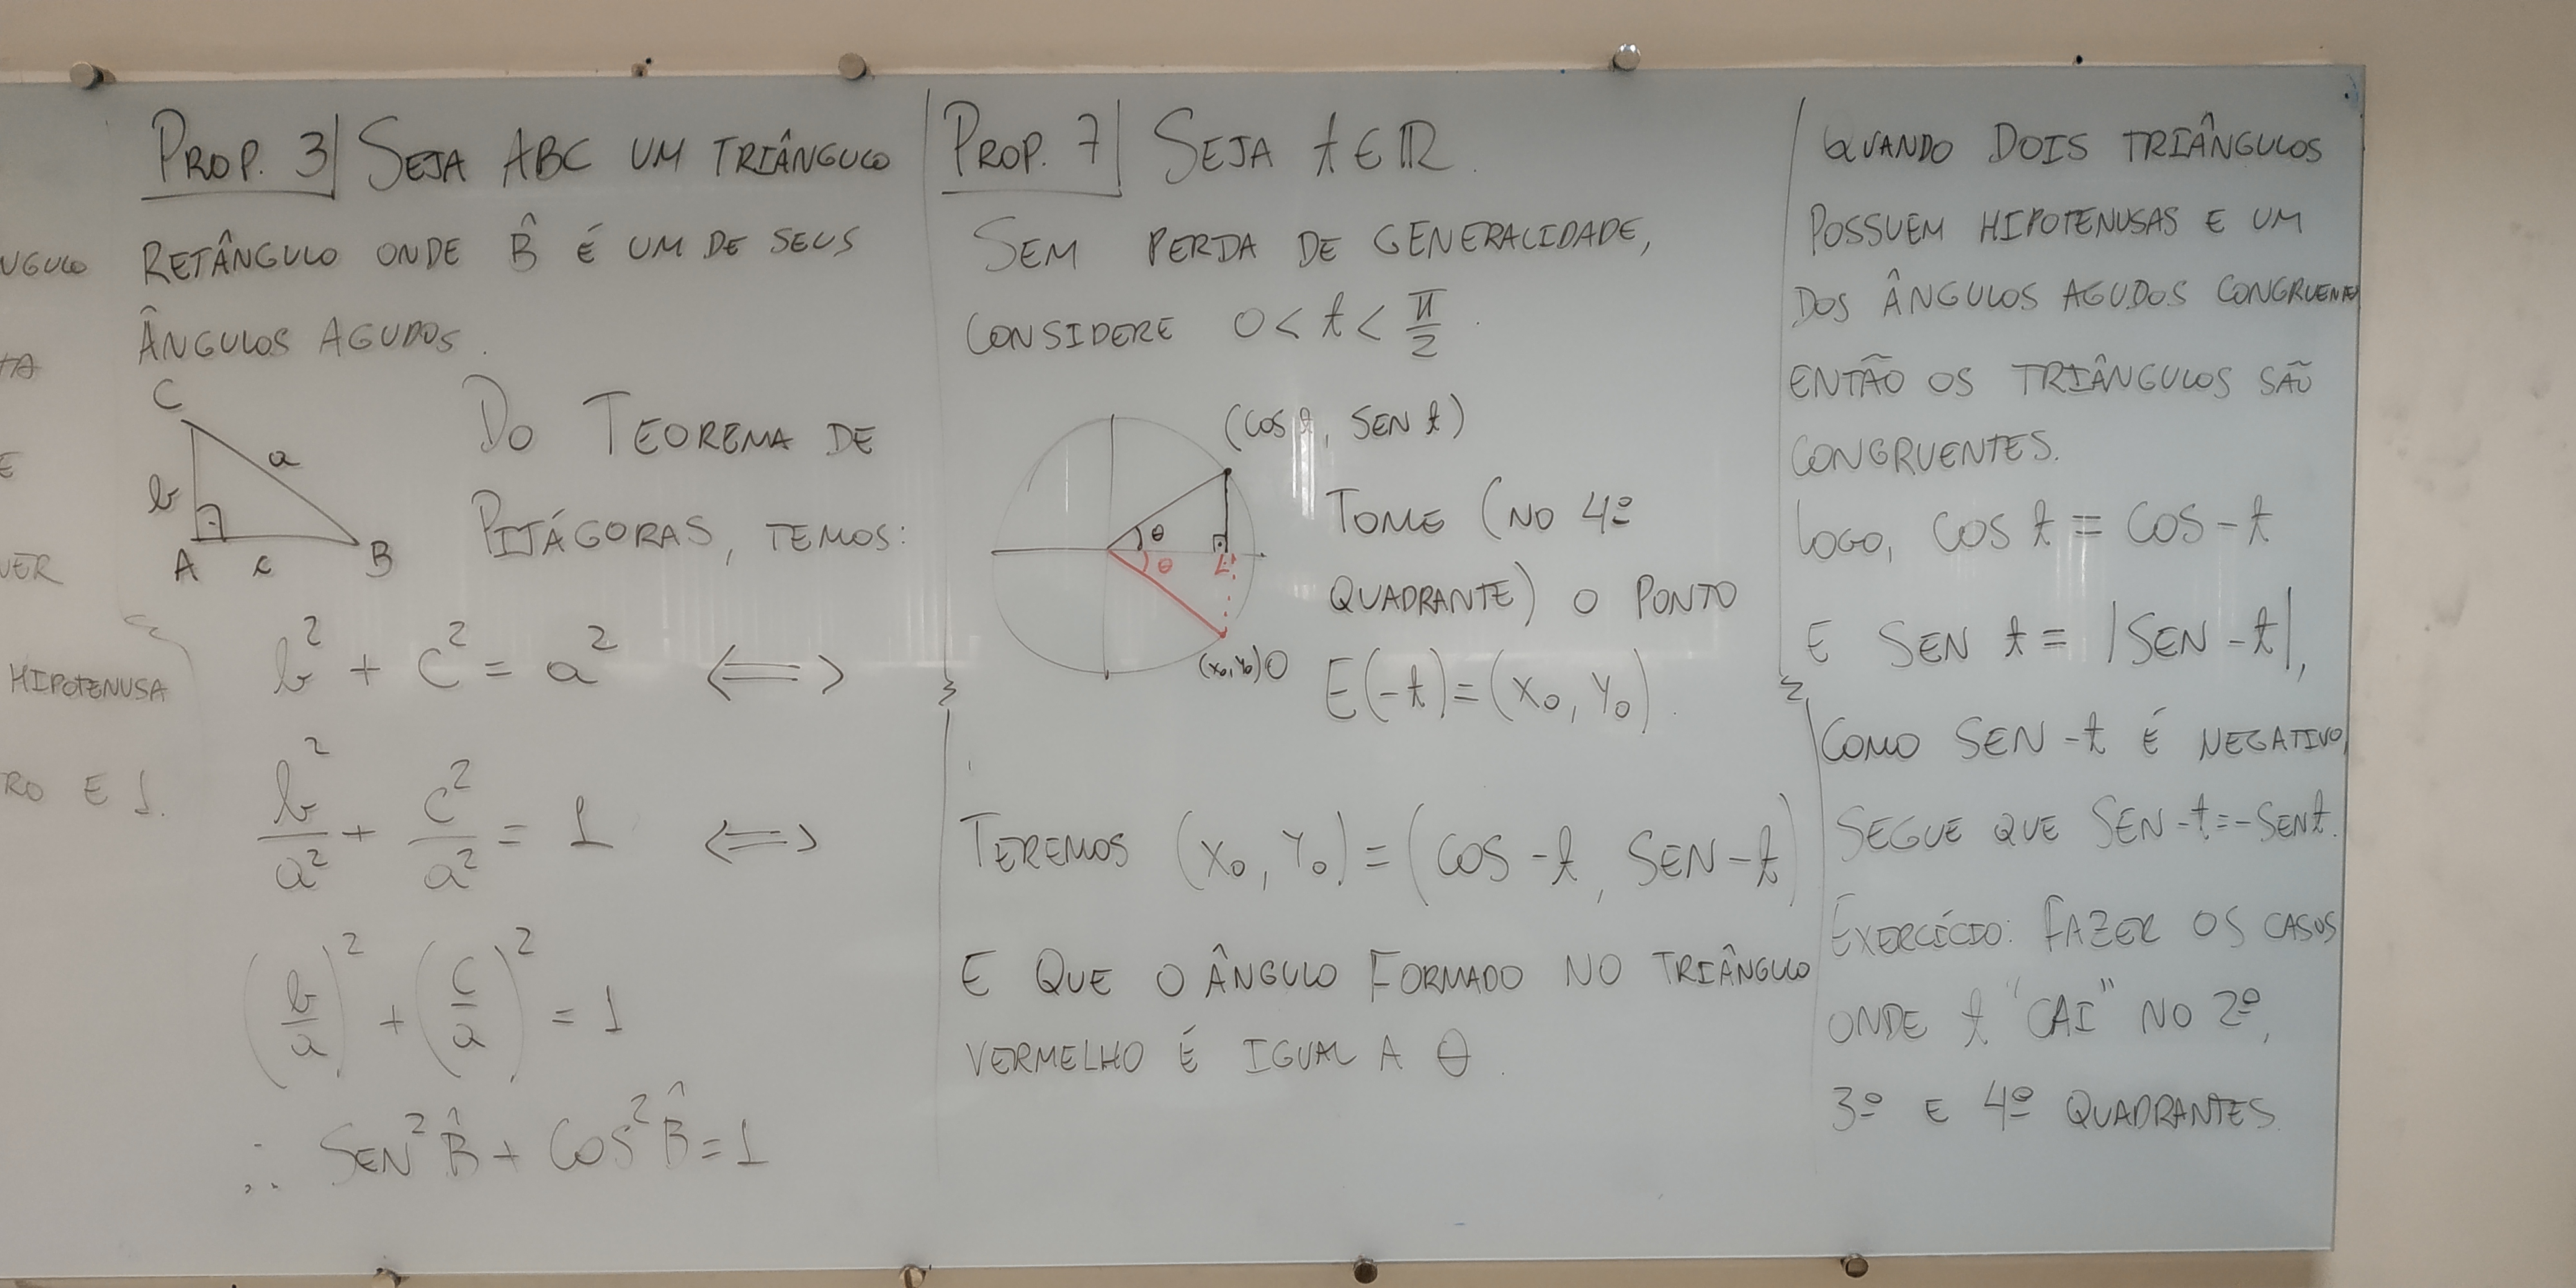 NGULO
TA
E
VER
HIPOTENUSA
RO E 1.
PROP. 3 SEJA ABC UM TRIÂNGULO
RETÂNGULO ONDE B̂ É UM DE SEUS
ÂNGULOS AGUDOS.
C
a
b
A
c
B
DO TEOREMA DE
PITÁGORAS, TEMOS:
b² + c² = a² <=>
b²/a² + c²/a² = 1 <=>
(b/a)² + (c/a)² = 1
∴ SEN² B̂ + COS² B̂ = 1
PROP. 7 SEJA t ∈ ℝ.
SEM PERDA DE GENERALIDADE,
CONSIDERE 0 < t < π/2.
(COS t, SEN t)
θ
θ
(x₀, y₀)
TOME (NO 4º
QUADRANTE) O PONTO
E(-t) = (x₀, y₀).
TEREMOS (x₀, y₀) = (COS -t, SEN -t)
E QUE O ÂNGULO FORMADO NO TRIÂNGULO
VERMELHO É IGUAL A θ.
QUANDO DOIS TRIÂNGULOS
POSSUEM HIPOTENUSAS E UM
DOS ÂNGULOS AGUDOS CONGRUENTES
ENTÃO OS TRIÂNGULOS SÃO
CONGRUENTES.
LOGO, COS t = COS -t
E SEN t = |SEN -t|,
COMO SEN -t É NEGATIVO,
SEGUE QUE SEN -t = -SEN t.
EXERCÍCIO: FAZER OS CASOS
ONDE t "CAI" NO 2º,
3º E 4º QUADRANTES.